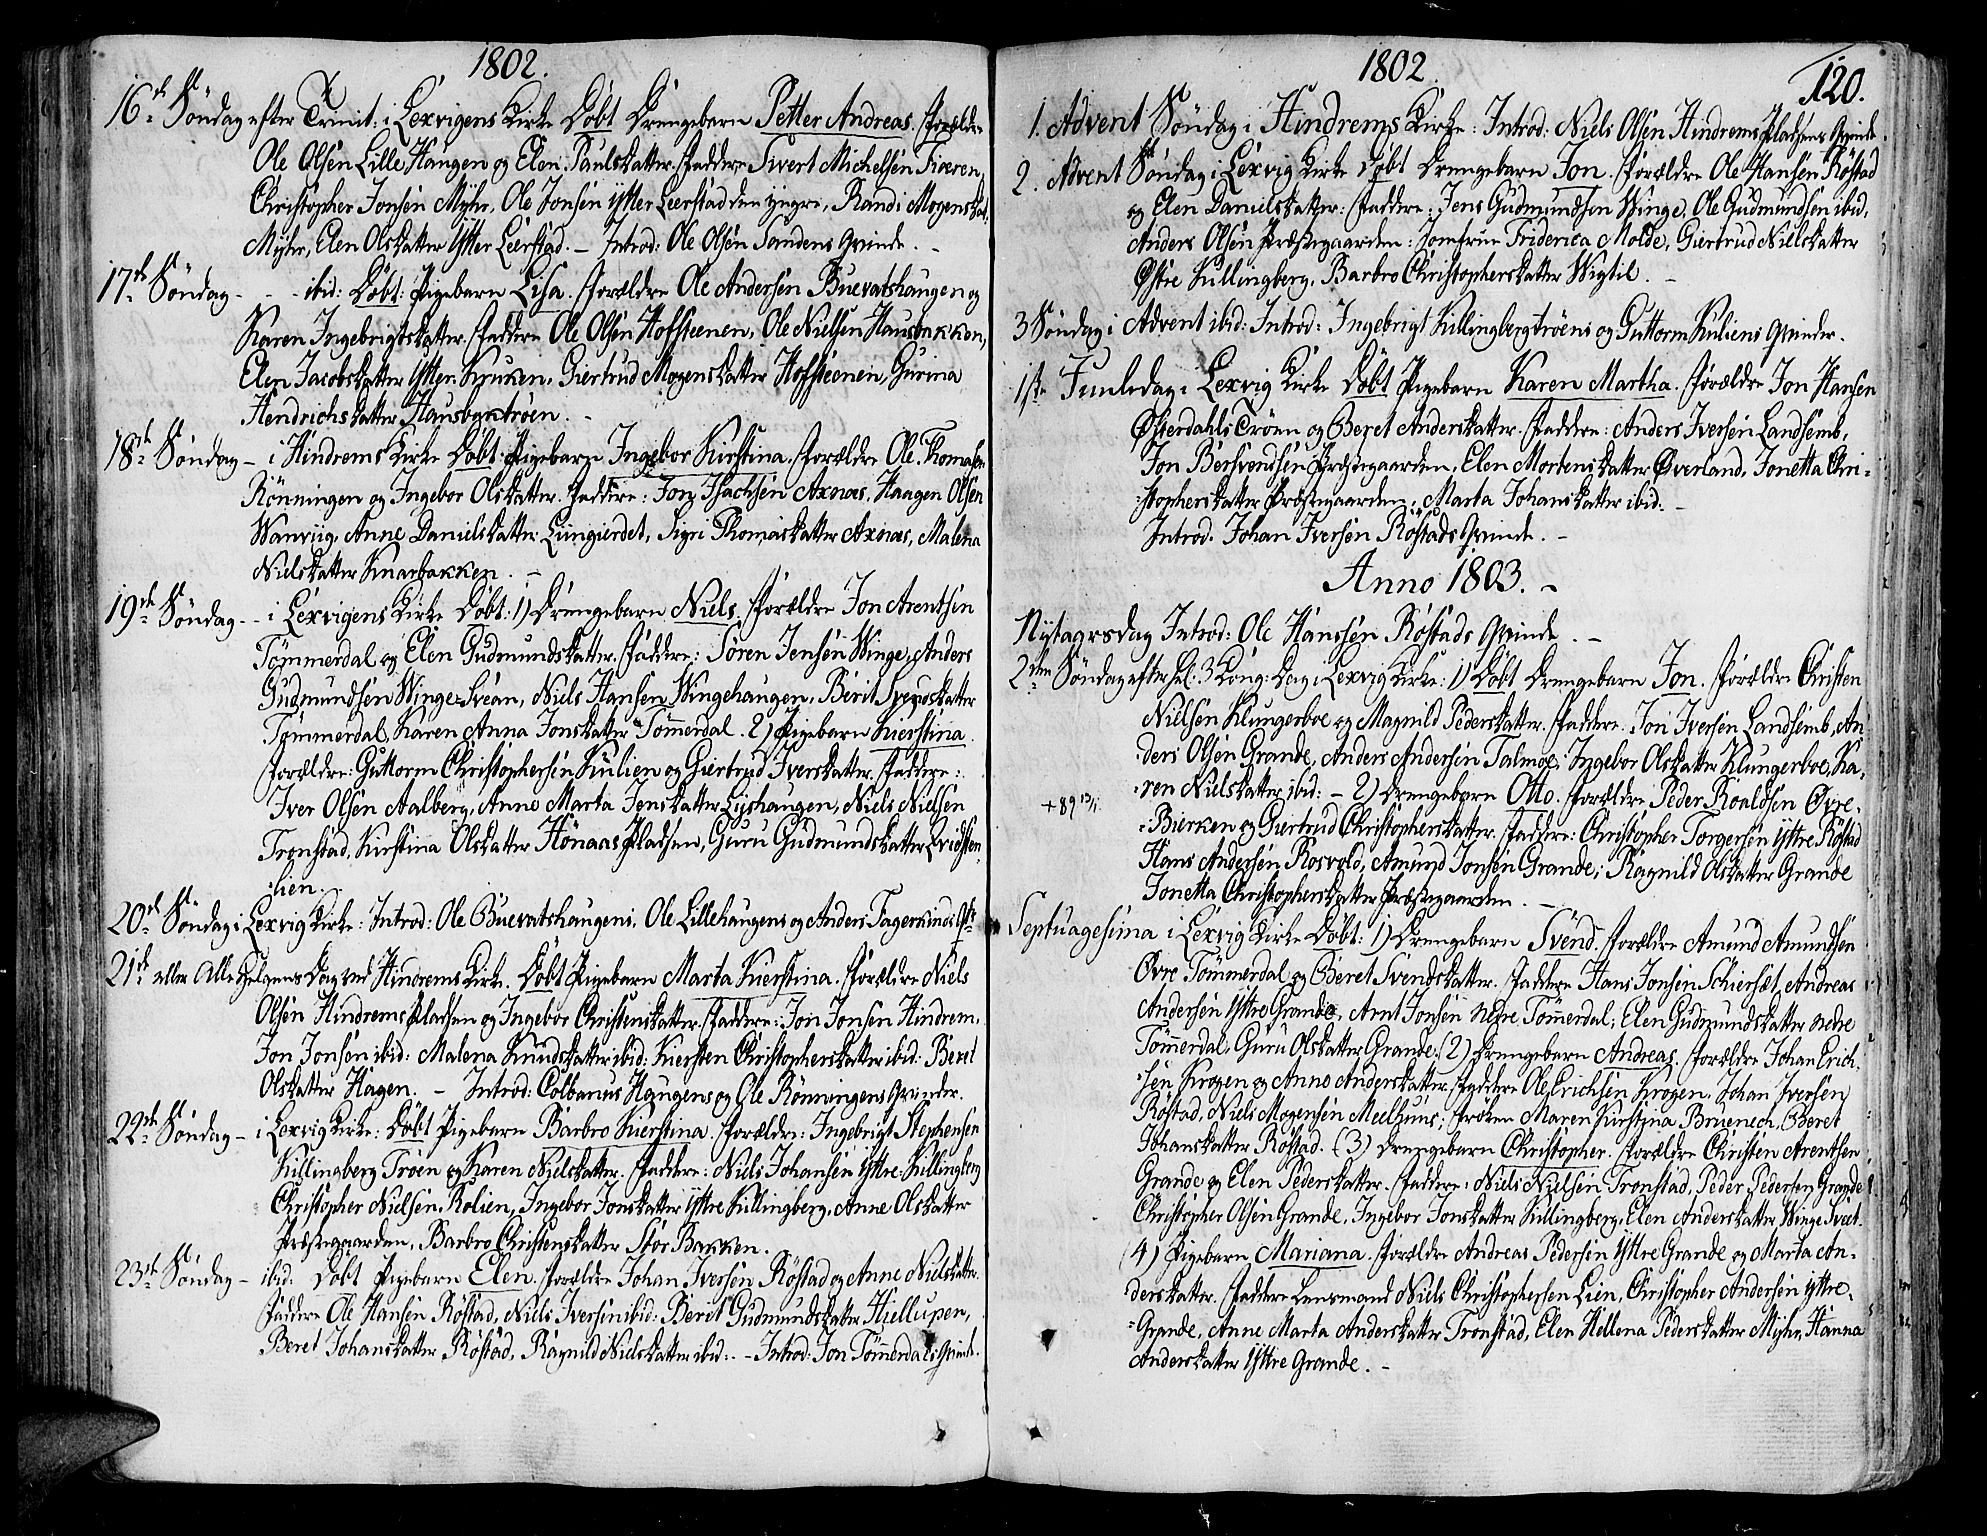 1802.
16de Søndag efter Trinit: i Lexvigens Kirke Døbt Drengebarn Petter Andreas. Forældre
Ole Olsen Lille Haugen og Elen Paulsdatter. Faddere Sivert Michelsen
Christopher Jonsen Myhr, Ole Jonsen Ytter Leerstad den yngre, Randi Mogensdat.
Myhr, Elen Olsdatter Ytter Leerstad. – Introd: Ole Olsen Sandens Qvinde. –
17de Søndag - - - ibid: Døbt: Pigebarn Lisa. Forældre Ole Andersen Buevatshaugen og
Karen Ingebrigtsdatter. Faddere Ole Olsen Hofsteenen, Ole Nielsen Hausbakken,
Elen Jacobsdatter Ytter Kruken, Giertrud Mogensdatter Hofsteenen, Gurina
Hendrichsdatter Hausbyktrøen. –
18de Søndag - i Hindrems Kirke Døbt: Pigebarn Ingebor Kirstina. Forældre Ole Thomasen
Rønningen og Ingebor Olsdatter. Faddere: Jon Isachsen Axnæs, Haagen Olsen
Wanviig, Anne Danielsdatter Liungierdet, Sigri Thomasdatter Axnæs, Malena
Nielsdatter Knarbakken. –
19de Søndag - - i Lexvigens Kirke Døbt: 1) Drengebarn Niels. Forældre Jon Arentsen
Tømmerdal og Elen Gudmundsdatter. Faddere: Søren Jensen Winge, Anders
Gudmundsen Winge-Svean, Niels Hansen Wingehaugen, Berit Svendsdatter
Tømmerdal, Karen Anna Jonsdatter Tømerdal. 2) Pigebarn Kierstina.
Forældre: Guttorm Christophersen Kulien og Giertrud Iversdatter. Faddere:
Iver Olsen Aalberg, Anne Marta Jensdatter Lyshaugen, Niels Nielsen
Tronstad, Kirstina Olsdatter Hønaas Pladsen, Guru Gudmundsdatter Qvidsten-
lien.
20de Søndag i Lexvig Kirke: Introd: Ole Buevatshaugens, Ole Lillehaugens og Anders
21de eller Alle Helgens Dag ved Hindrems Kirke. Døbt Pigebarn Marta Kierstina. Forældre Niels
Olsen Hindrems Pladsen og Ingebor Christensdatter. Faddere: Jon Jonsen Hindrem,
Jon Jonsen ibid: Malena Knudsdatter ibid: Kiersten Christophersdatter ibid: Beret
Olsdatter Hagen. – Introd: Colbanus Haugens og Ole Rønningens Qvinder.
22de Søndag - i Lexvig Kirke: Døbt Pigebarn Barbro Kierstina. Forældre: Ingebrigt Stephensen
Killingberg Trøen og Karen Nielsdatter. Faddere: Niels Johansen Yttre Killingberg
Christopher Nielsen Rolien, Ingebor Jonsdatter Yttre Killingberg, Anne Olsdatter
Præstegaarden, Barbro Christensdatter Stor Bakken.
23de Søndag - ibid: Døbt Pigebarn Elen. Forældre Johan Iversen Røstad og Anne Nielsdatter.
Faddere Ole Hansen Røstad, Niels Iversen ibid: Beret Gudmundsdatter Hiellupen,
Beret Johansdatter Røstad, Ragnild Nielsdatter ibid: – Introd: Jon Tømerdals Qvinde.
1802.
120.
1. Advent Søndag i Hindrems Kirke: Introd: Niels Olsen Hindrems Pladsens Qvinde.
2. Advent Søndag i Lexvig Kirke Døbt Drengebarn Jon. Forældre Ole Hansen Røstad
og Elen Danielsdatter: Faddere: Jens Gudmundsen Winge, Ole Gudmundsen ibid,
Anders Olsen Præstegaarden: Jomfrue Friderica Molde, Giertrud Nielsdatter
Østre Killingberg, Barbro Christophersdatter Wigtil. –
3 Søndag i Advent ibid: Introd: Ingebrigt Killingbergtrøens og Guttorm Kuliens Qvinder.
1ste Juuledag i Lexvig Kirke Døbt Pigebarn Karen Martha. Forældre Jon Hansen
Østerdahls Trøen og Beret Andersdatter. Faddere: Anders Iversen Landsemb,
Jon Bersvendsen Præstegaarden, Elen Mortensdatter Øverland, Jonetta Chri-
stophersdatter Præstegaarden, Marta Johansdatter ibid. –
Introd. Johan Iversen Røstads Qvinde. –
Anno 1803. –
Nytaarsdag Introd: Ole Hanssen Røstads Qvinde. –
2den Søndag efter Hel: 3 Kong: Dag i Lexvig Kirke: 1) Døbt Drengebarn Jon. Forældre Christen
Nielsen Klungerboe og Magnild Pedersdatter. Faddere: Jon Iversen Landsemb, An-
ders Olsen Grande, Anders Andersen Talmoe, Ingebor Olsdatter Klungerboe, Ka-
ren Nielsdatter ibid: – 2) Drengebarn Otto. Forældre Peder Roaldsen Øvre-
+89 13/11
Bierken og Giertrud Christophersdatter. Faddere: Christopher Torgersen Yttre Røstad
Hans Andersen Rosvold, Amund Jonsen Grande, Ragnild Olsdatter Grande
Jonetta Christophersdatter Præstegaarden. –
Septuagesima i Lexvig Kirke Døbt: 1) Drengebarn Svend. Forældre Amund Amundsen
Øvre Tømmerdal og Beret Svendsdatter. Faddere Hans Jonsen Schierset, Andreas
Andersen Yttre Grande, Arnt Jonsen Nedre Tømerdal, Elen Gudmundsdatter Nedre
Tømerdal, Guru Olsdatter Grande. (2) Drengebarn Andreas. Forældre Johan Erich-
sen Krogen og Anne Andersdatter. Faddere Ole Erichsen Krogen, Johan Iversen
Røstad, Niels Mogensen Meelhuus, Frøken Maren Kirstina Bruenech, Beret
Johansdatter Røstad. (3) Drengebarn Christopher. Forældre Christen Arentsen
Grande og Elen Pedersdatter. Faddere: Niels Nielsen Tronstad, Peder Pedersen Grande
Christopher Olsen Grande, Ingebor Jonsdatter Killingberg, Elen Andersdatter Winge Sveet.
(4) Pigebarn Mariana. Forældre Andreas Pedersen Yttre Grande og Marta An-
dersdatter. Faddere Lensmand Niels Christophersen Lien, Christopher Andersen Yttre-
Grande, Anne Marta Andersdatter Tronstad, Elen Hellena Pedersdatter Myhr, Hanna
Andersdatter Yttre Grande. –